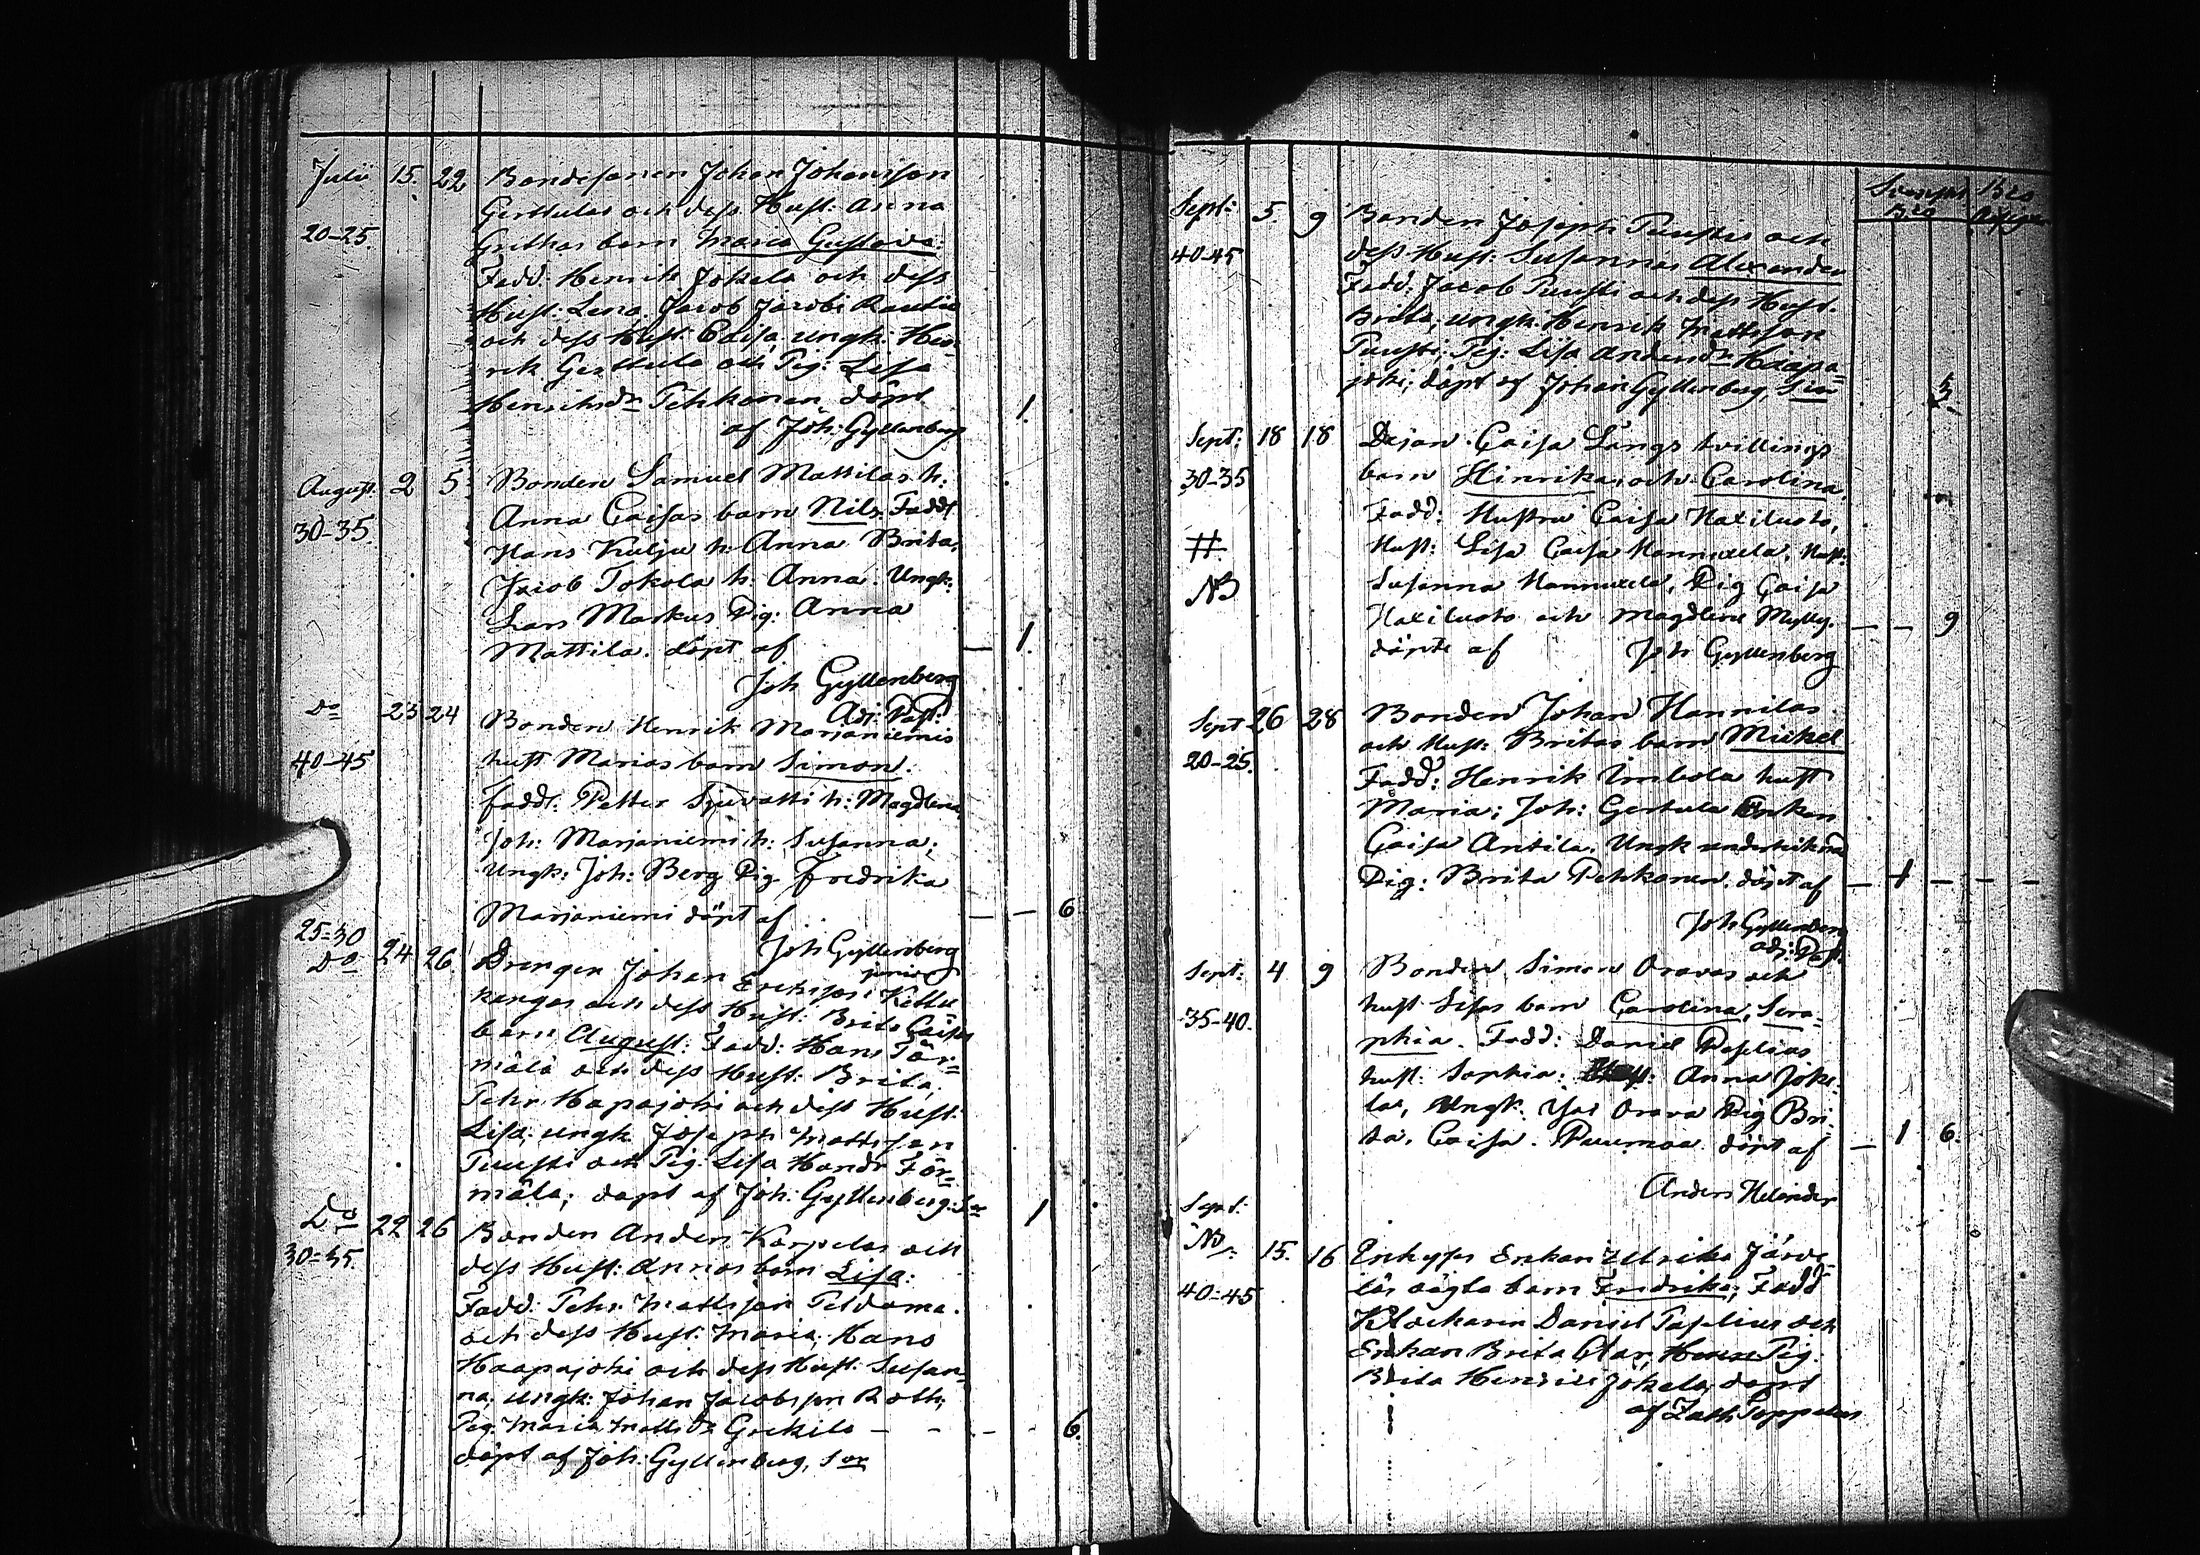 Julii 15. 22 Bondesonen Johan Johansson
Gerttulas och dess Hust: Anna
20-25 Grethas barn Maria Gustava:
Fadd: Henrik Jokela och dess
Hust: Lena. Jacob Jacobs Rautio
och dess Hust: Caisa, ungk: Hen-
rik Gerttula och Pig: Lisa
Henriksdr Pehkonen döpt
af Joh: Gyllenberg 1.
August. 2 5 Bonden Samuel Mattilas h:
Anna Caisas barn Nils. Fadd:
30-35 Hans Kulju h: Anna Brita,
Jacob Tokola h: Anna. Ungk:
Lars Markus Pig: Anna
Mattila. döpt af — 1.
Joh Gyllenberg
Adj: Past:
Do 23 24 Bonden Henrik Marjaniemis
40-45 hust Marias barn Simon.
fadd: Petter h: Magdlena,
Joh: Marjaniemi h: Susanna;
Ungk: Joh: Berg Pig Fredrika
Marjaniemi döpt af — — 6
Joh Gyllenberg
junior
25=30
Do 24 26. Drengen Johan Erikss: Kettu
kangas och dess Hust: Brita Caisas
barn August: Fadd: Hans Tör=
mälä och dess Hust: Brita,
Pehr Hapajoki och dess Hust:
Lisa, ungk Joseph Mattsson
Puusti och Pig: Lisa Hansdr Tör=
mälä; döpt af Joh: Gyllenberg: Sor 1
Do 22 26 Bonden Anders Karpelas och
30=35. dess Hust: Annas barn Lisa:
Fadd: Pehr Mattsson
och dess Hust: Maria, Hans
Haapajoki och dess Hust: Susan-
na, ungk: Johan Jacobsson Roth,
Pig Maria Mattsdr — - - - 6.
döpt af Joh: Gyllenberg, Sor
Sept: 5. 9 Bonden Joseph Puustis och
40-45 dess Hust: Susannas Alexander
Fadd: Jacob Puusti och dess Hust.
Brita, ungk: Henrik Mattsson
Puusti; Pig: Lisa Andersdr Haapa=
joki; döpt af Johan Gyllenberg, Sor
Sept: 18 18 Dejan Caisa Långs tvillings
30-35 barn Hinrika och Carolina.
Fadd: Hustru Caisa Haxiluoto,
# Hust: Lisa Caisa Mannuela, Hust:
NB Susanna Mannuela, Pig Caisa
Haxiluoto och Magdlena Mylly.
döpte af Joh Gyllenberg — — 9
Sept 26 28 Bonden Johan Hannilas
och Hust: Britas barn Mickel
20-25. Fadd: Henrik Imbola hust
Maria; Joh: Gertula Enkan
Caisa Antila. Ungk
Pig: Brita Pehkonen. döpt af — 1 — — —
Joh Gyllenberg
adj: Past.
Sept: 4 9 Bonden Simon Oravas och
hust Lisas barn Carolina, Sera-
35-40. phia. Fadd: Daniel Paselius
hust: Sophia: Anna Joke-
las, Ungk. Orava Pig Bri-
ta, Caisa. Puumaa döpt af — 1 6.
Anders Helander
Sept:
NB: 15. 16 Enhyses Enkan Ulrika Järve-
40=45 läs oägta barn Fredrika; Fadd
Klockaren Daniel Paselius och
Enkan Brita Pig:
Brita Henriks Jokela, döpt
af Zach: Toppelius